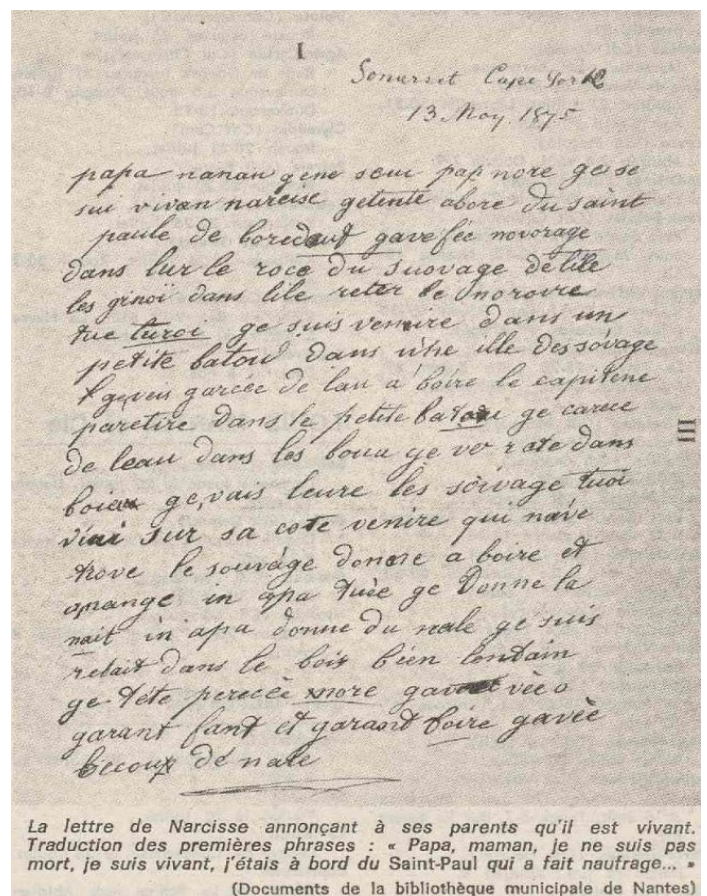 I
Somerset Cape York
13 May 1875
papa nanan gene seui pap nore ge se
sui vivan narcise getente abore du saint
paule de boredaut gave fée novorage
dans lur le roce du suovage de lile
les ginoï dans lile reter le norovre
tue turoi ge suis venire dans un
petite batou dans une ille des sovage
ge veis garcée de lau a boire le capitene
paretire dans le petite batau ge carece
de leau dans les boua ge ve rate dans
boiea ge, vais leure les sovage tuoi
viai sur sa cote venire qui nave
trove le souvage donore a boire et
a mange in apa tuée ge Donne la
nait in apa donne du nale ge suis
relait dans le bois bien londain
ge téte perecée more gavet vée o
garant fant et garant boire gavée
becoup de nale
II
La lettre de Narcisse annonçant à ses parents qu'il est vivant.
Traduction des premières phrases : « Papa, maman, je ne suis pas
mort, je suis vivant, j'étais à bord du Saint-Paul qui a fait naufrage... »
(Documents de la bibliothèque municipale de Nantes)